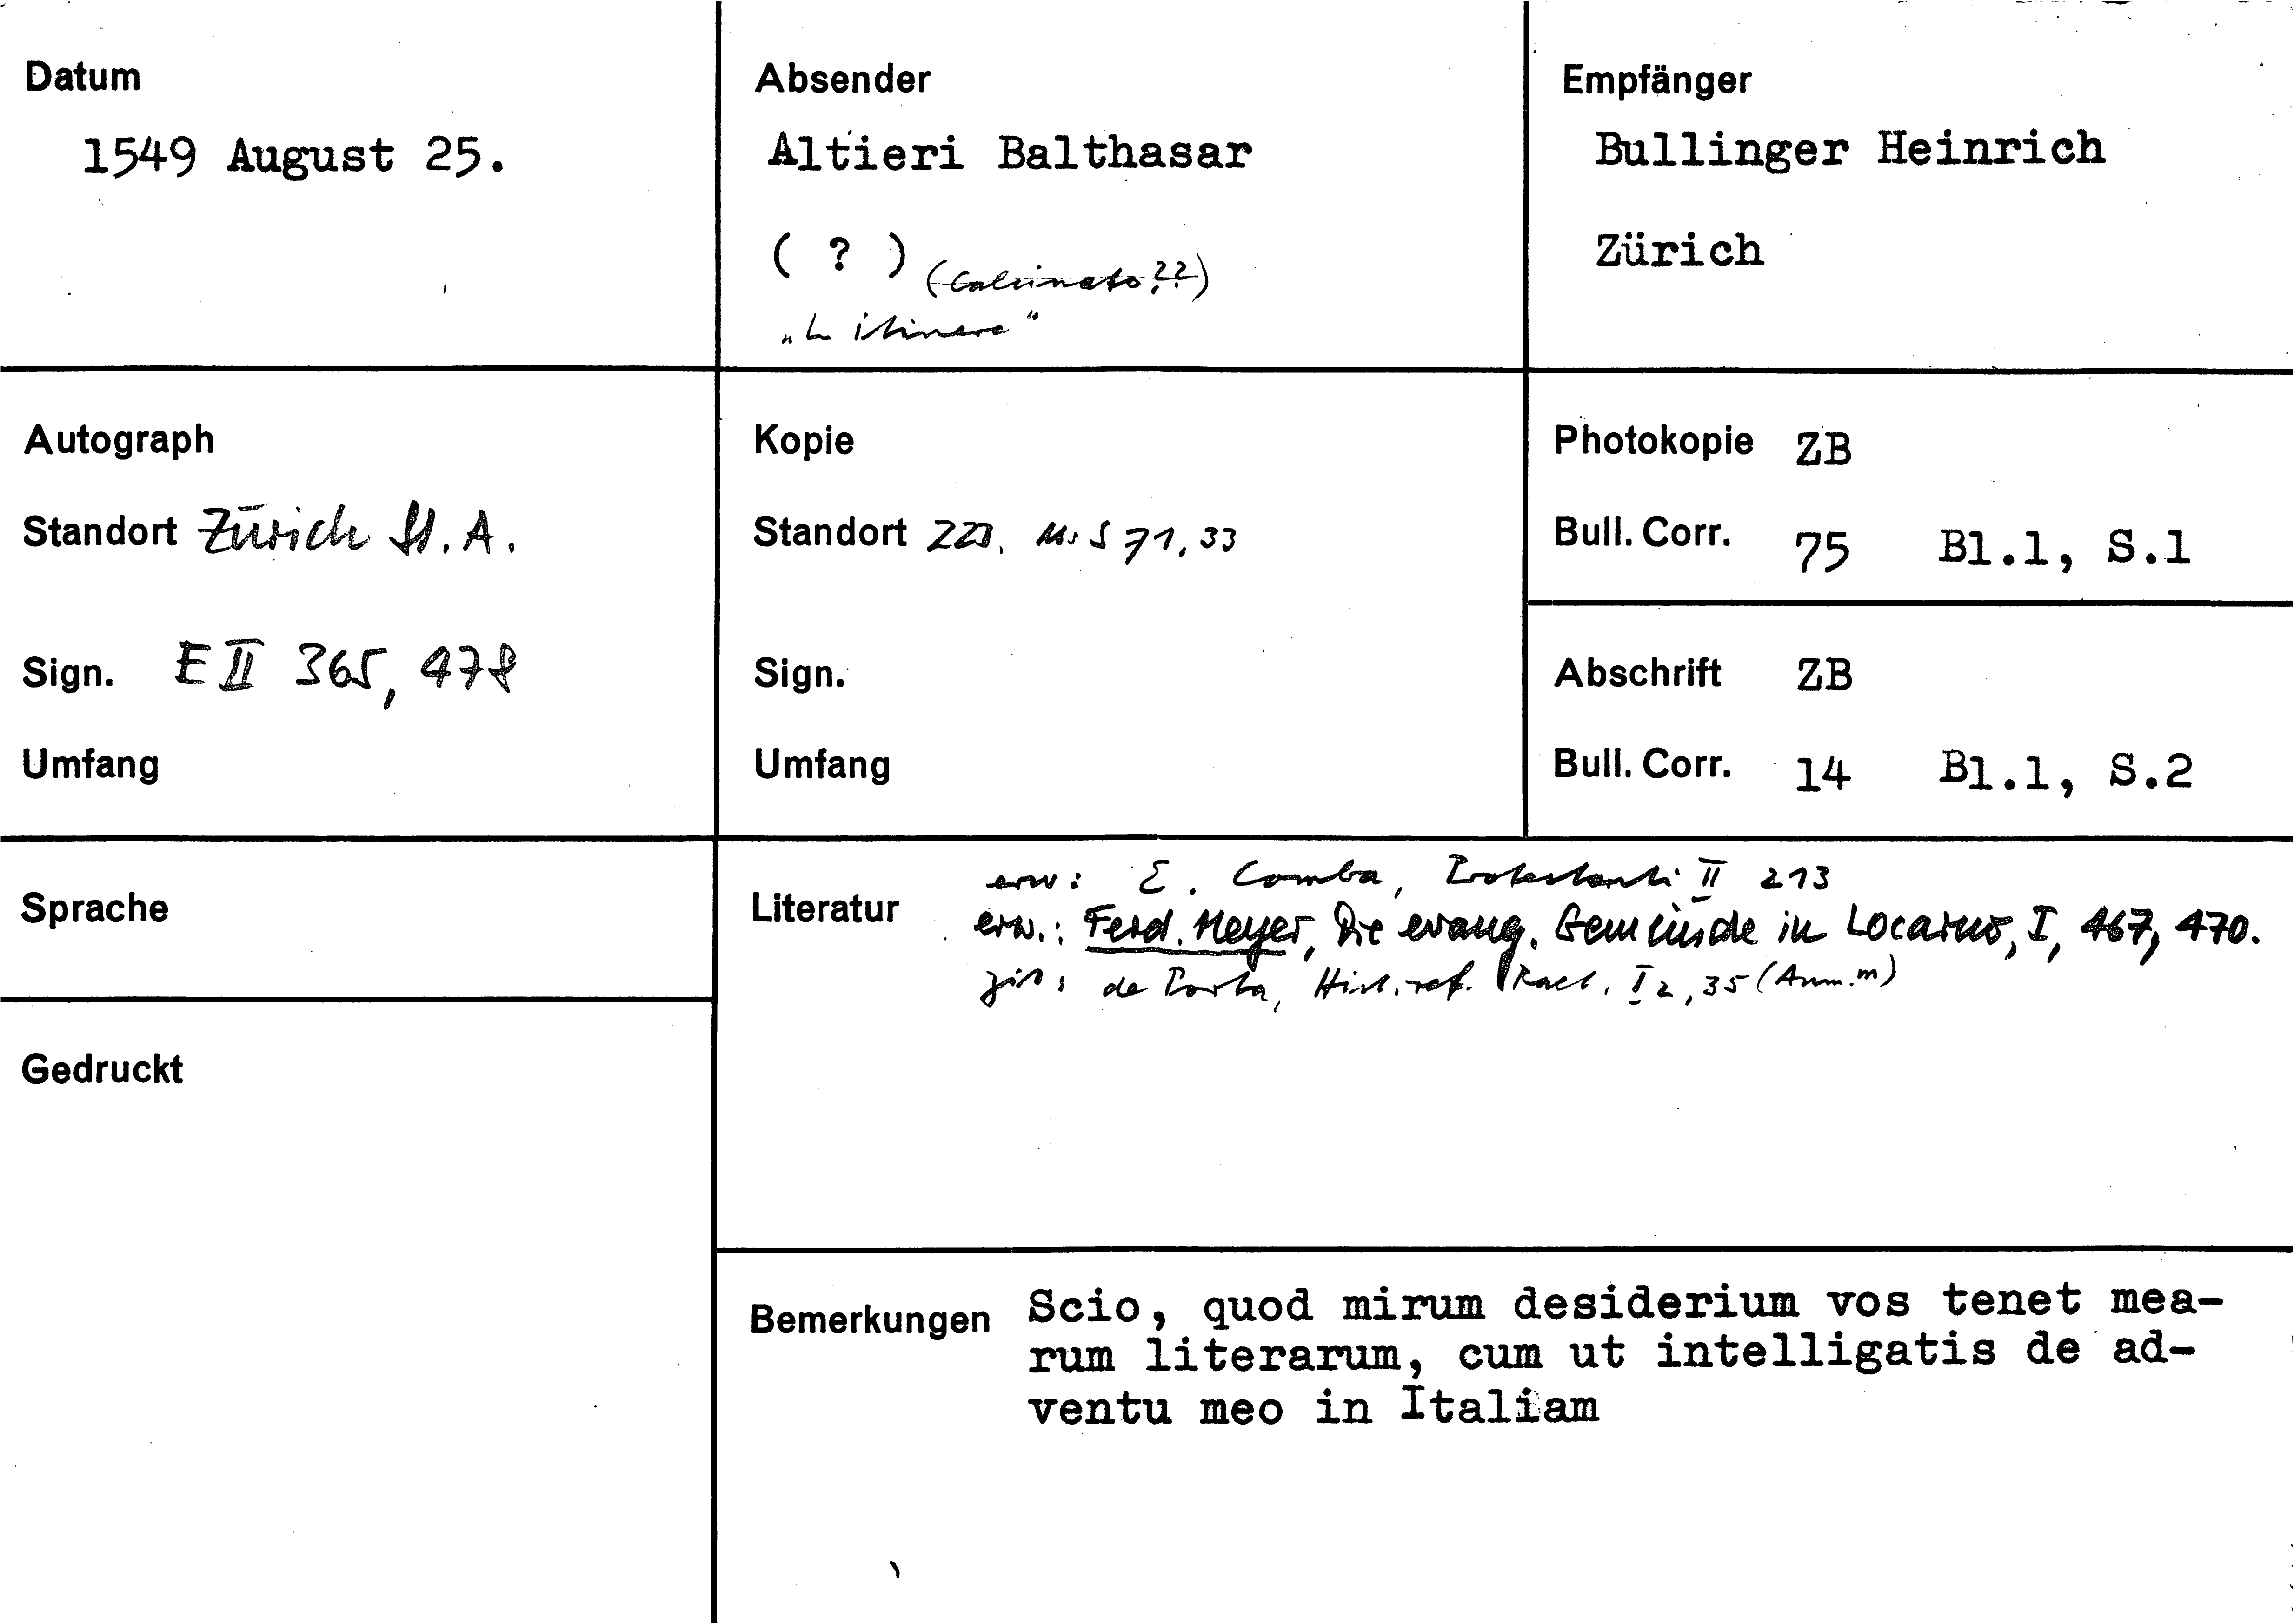 Datum
1549 August 25.
Absender
Altieri Balthasar
( ? ) (Calcinato ??)
"In itinere"
Empfänger
Bullinger Heinrich
Zürich
Autograph
Standort Zürich St. A.
Sign. E II 365, 478
Umfang
Kopie
Standort ZB, Ms S 71, 33
Sign.
Umfang
Photokopie ZB
Bull. Corr. 75 Bl.1, S.1
Abschrift ZB
Bull. Corr. 14 Bl.1, S.2
Sprache
Gedruckt
Literatur
erw: E. Comba, Protestanti II 213
erw.: Ferd. Meyer, Die evang. Gemeinde in Locarno, I, 467, 470.
zit: de Porta, Hist. ref. Raet. I 2, 35 (Anm. m)
Bemerkungen
Scio, quod mirum desiderium vos tenet mea-
rum literarum, cum ut intelligatis de ad-
ventu meo in Italiam